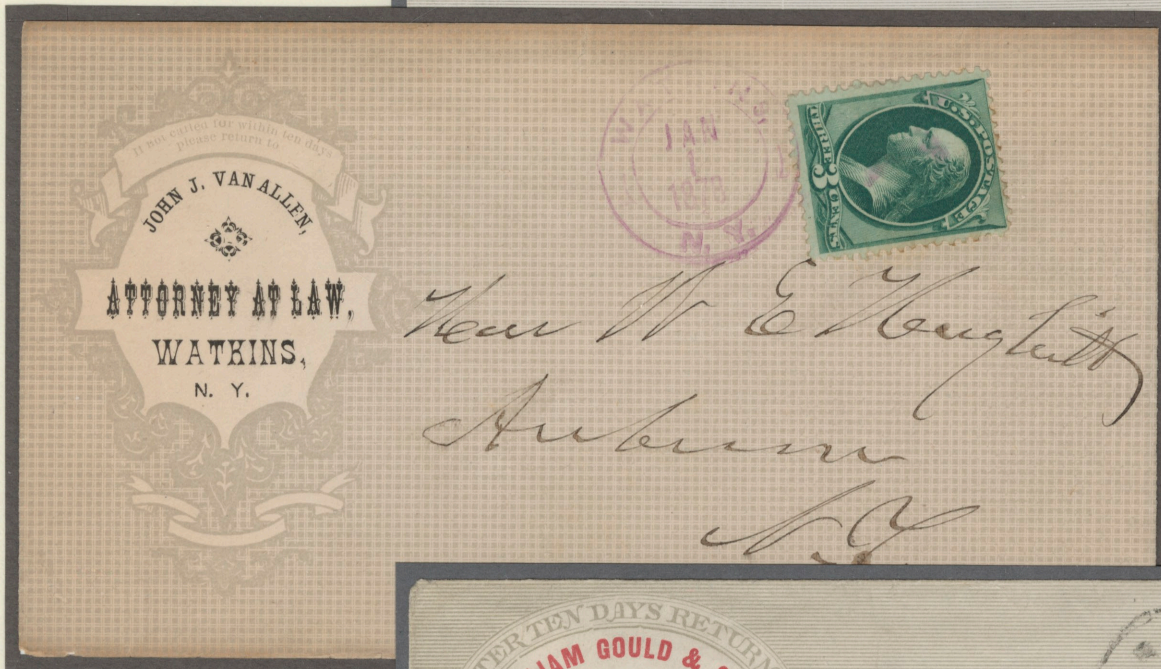 It not called for within ten days
please return to
JOHN J. VAN ALLEN,
ATTORNEY AT LAW,
WATKINS,
N. Y.
JAN
1
N.Y.
U.S. POSTAGE
THREE 3 CENTS
W E
Auburn
N.Y
TER TEN DAYS RETURN
IAM GOULD &